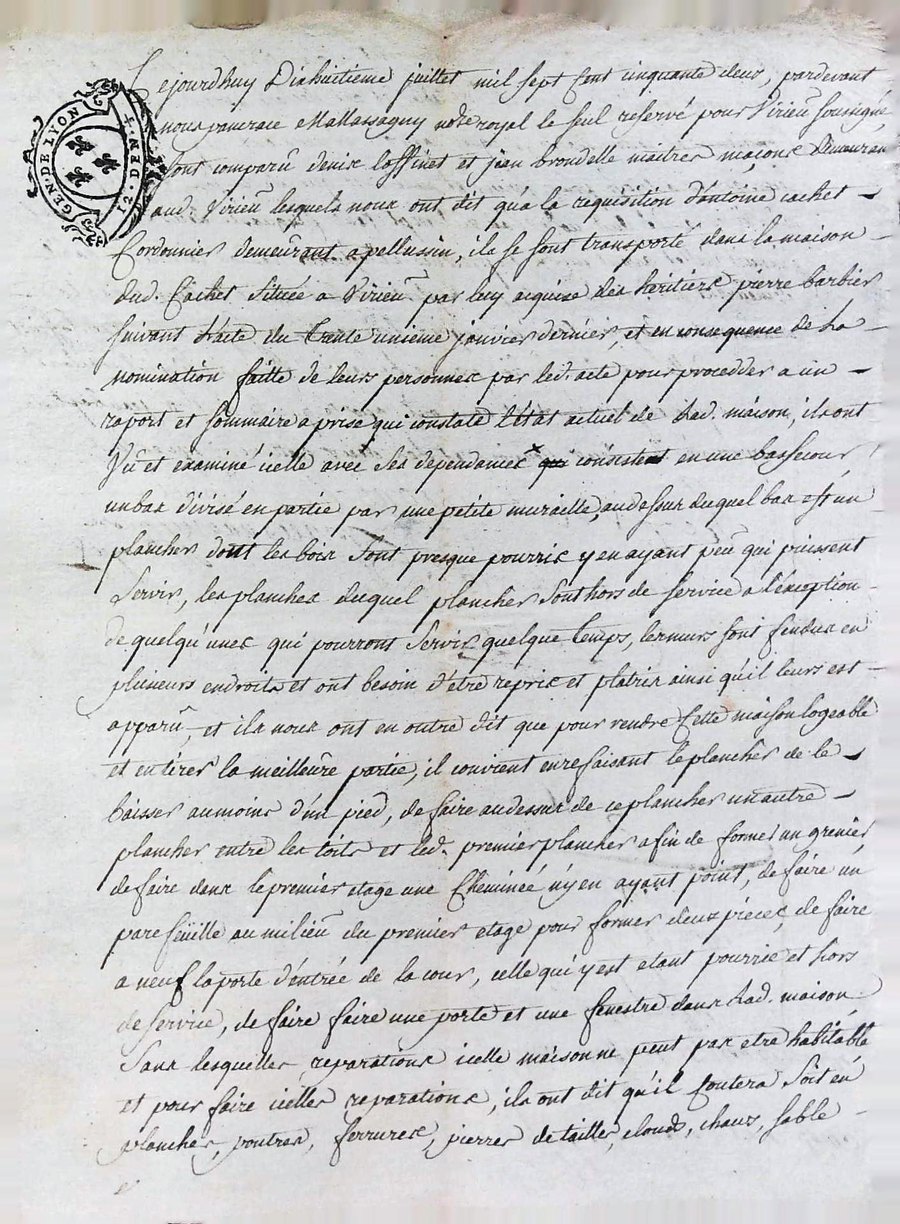 GEN. DE LYON
12. DEN. 4
Cejourdhuy Dixhuitieme juillet mil sept cent cinquante deux, pardevant
nous pancrace Mallassagny notre royal le seul reservé pour Virieu soussigné
sont comparu denis loffinet et jean brondelle maitres maçons Demeuran
aud. Virieu lesquels nous ont dit qu'a la requisition d'antoine cachet
Cordonnier demeurant a pellussin, ils se sont transporté dans la maison
dud. Cachet Située a Virieu par luy acquise des heritiers pierre barbier
suivant l'acte du trente unieme janvier dernier, et en consequence de la
nomination faitte de leurs personnes par led. acte pour procedder a un
raport et sommaire a prise qui constate l'état actuel de lad. maison, ils ont
Vu et examiné icelle avec ses dependances x qui consistent en une bassecour
un bas divisé en partie par une petite muraille, au dessus duquel bas est un
plancher dont les bois sont presque pourris y en ayant peu qui puissent
Servir, les planches duquel plancher sont hors de service a l'exeption
de quelqu'unes qui pourront servir quelque temps, les murs sont fendus en
plusieurs endroits et ont besoin d'être repris et platris ainsi qu'il leurs est
apparu, et ils nous ont en outre dit que pour rendre Cette maison logeable
et en tirer la meilleure partie, il convient en refaisant le plancher de le
baisser au moins d'un pied, de faire au dessus de ce plancher un autre
plancher entre les toits et led. premier plancher afin de former un grenier
de faire dans le premier etage une Cheminée n'y en ayant point, de faire un
pare feüille au milieu du premier etage pour former deux pieces, de faire
a neuf la porte d'entrée de la cour, celle qui y est etant pourrie et hors
de service, de faire faire une porte et une fenestre dans lad. maison
Sans lesquelles reparations icelle maison ne peut pas etre habitable
et pour faire icelles reparations, ils ont dit qu'il Coutera Soit en
planches, poutres, ferrures, pierres de tailles, clouds, chaux, sable